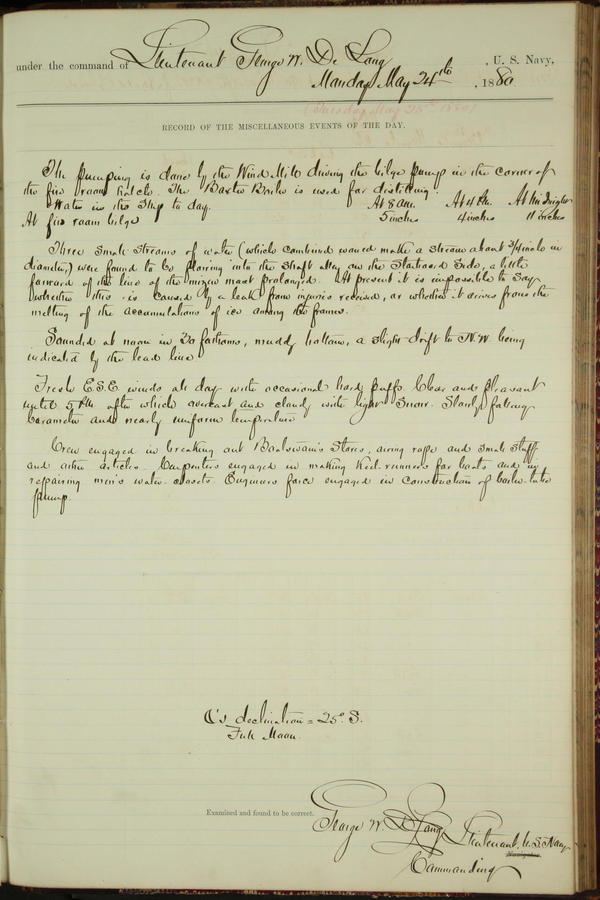 under the command of Lieutenant George W. De Long, U. S. Navy,
Monday May 24th, 1880
(Tuesday May 25th 1880)
RECORD OF THE MISCELLANEOUS EVENTS OF THE DAY.
The pumping is done by the Wind Mill driving the bilge pump in the corner of
the fire room hatch. The Baxter Boiler is used for distilling.
Water in the Ship to day. At 8 am. At 4 Pm. At Midnight
At fire room bilge 5 inches 4 inches 11 inches
Three small streams of water (which combined would make a stream about 3/4 inch in
diameter,) were found to be flowing into the shaft alley on the Starboard Side, a little
forward of the line of the mizzen mast prolonged. At present it is impossible to say
whether this is caused by a leak from injuries received, or whether it arises from the
melting of the accumulations of ice among the frames.
Sounded at noon in 30 fathoms, muddy bottom, a slight drift to N.W. being
indicated by the lead line
Fresh E.S.E. winds all day with occasional hard puffs. Clear and pleasant
until 5 Pm after which overcast and cloudy with light Snow. Slowly falling
barometer and nearly uniform temperature
Crew engaged in breaking out Boatswain's Stores, airing rope and small stuff
and other articles. Carpenters engaged in making keel-runners for boats and in
repairing men's water-closets. Engineers force engaged in construction of boiler-tube
pump.
☾'s declination = 25° S.
Full Moon.
Examined and found to be correct.
George W. De Long, Lieutenant, U.S. Navy
Navigator.
Commanding